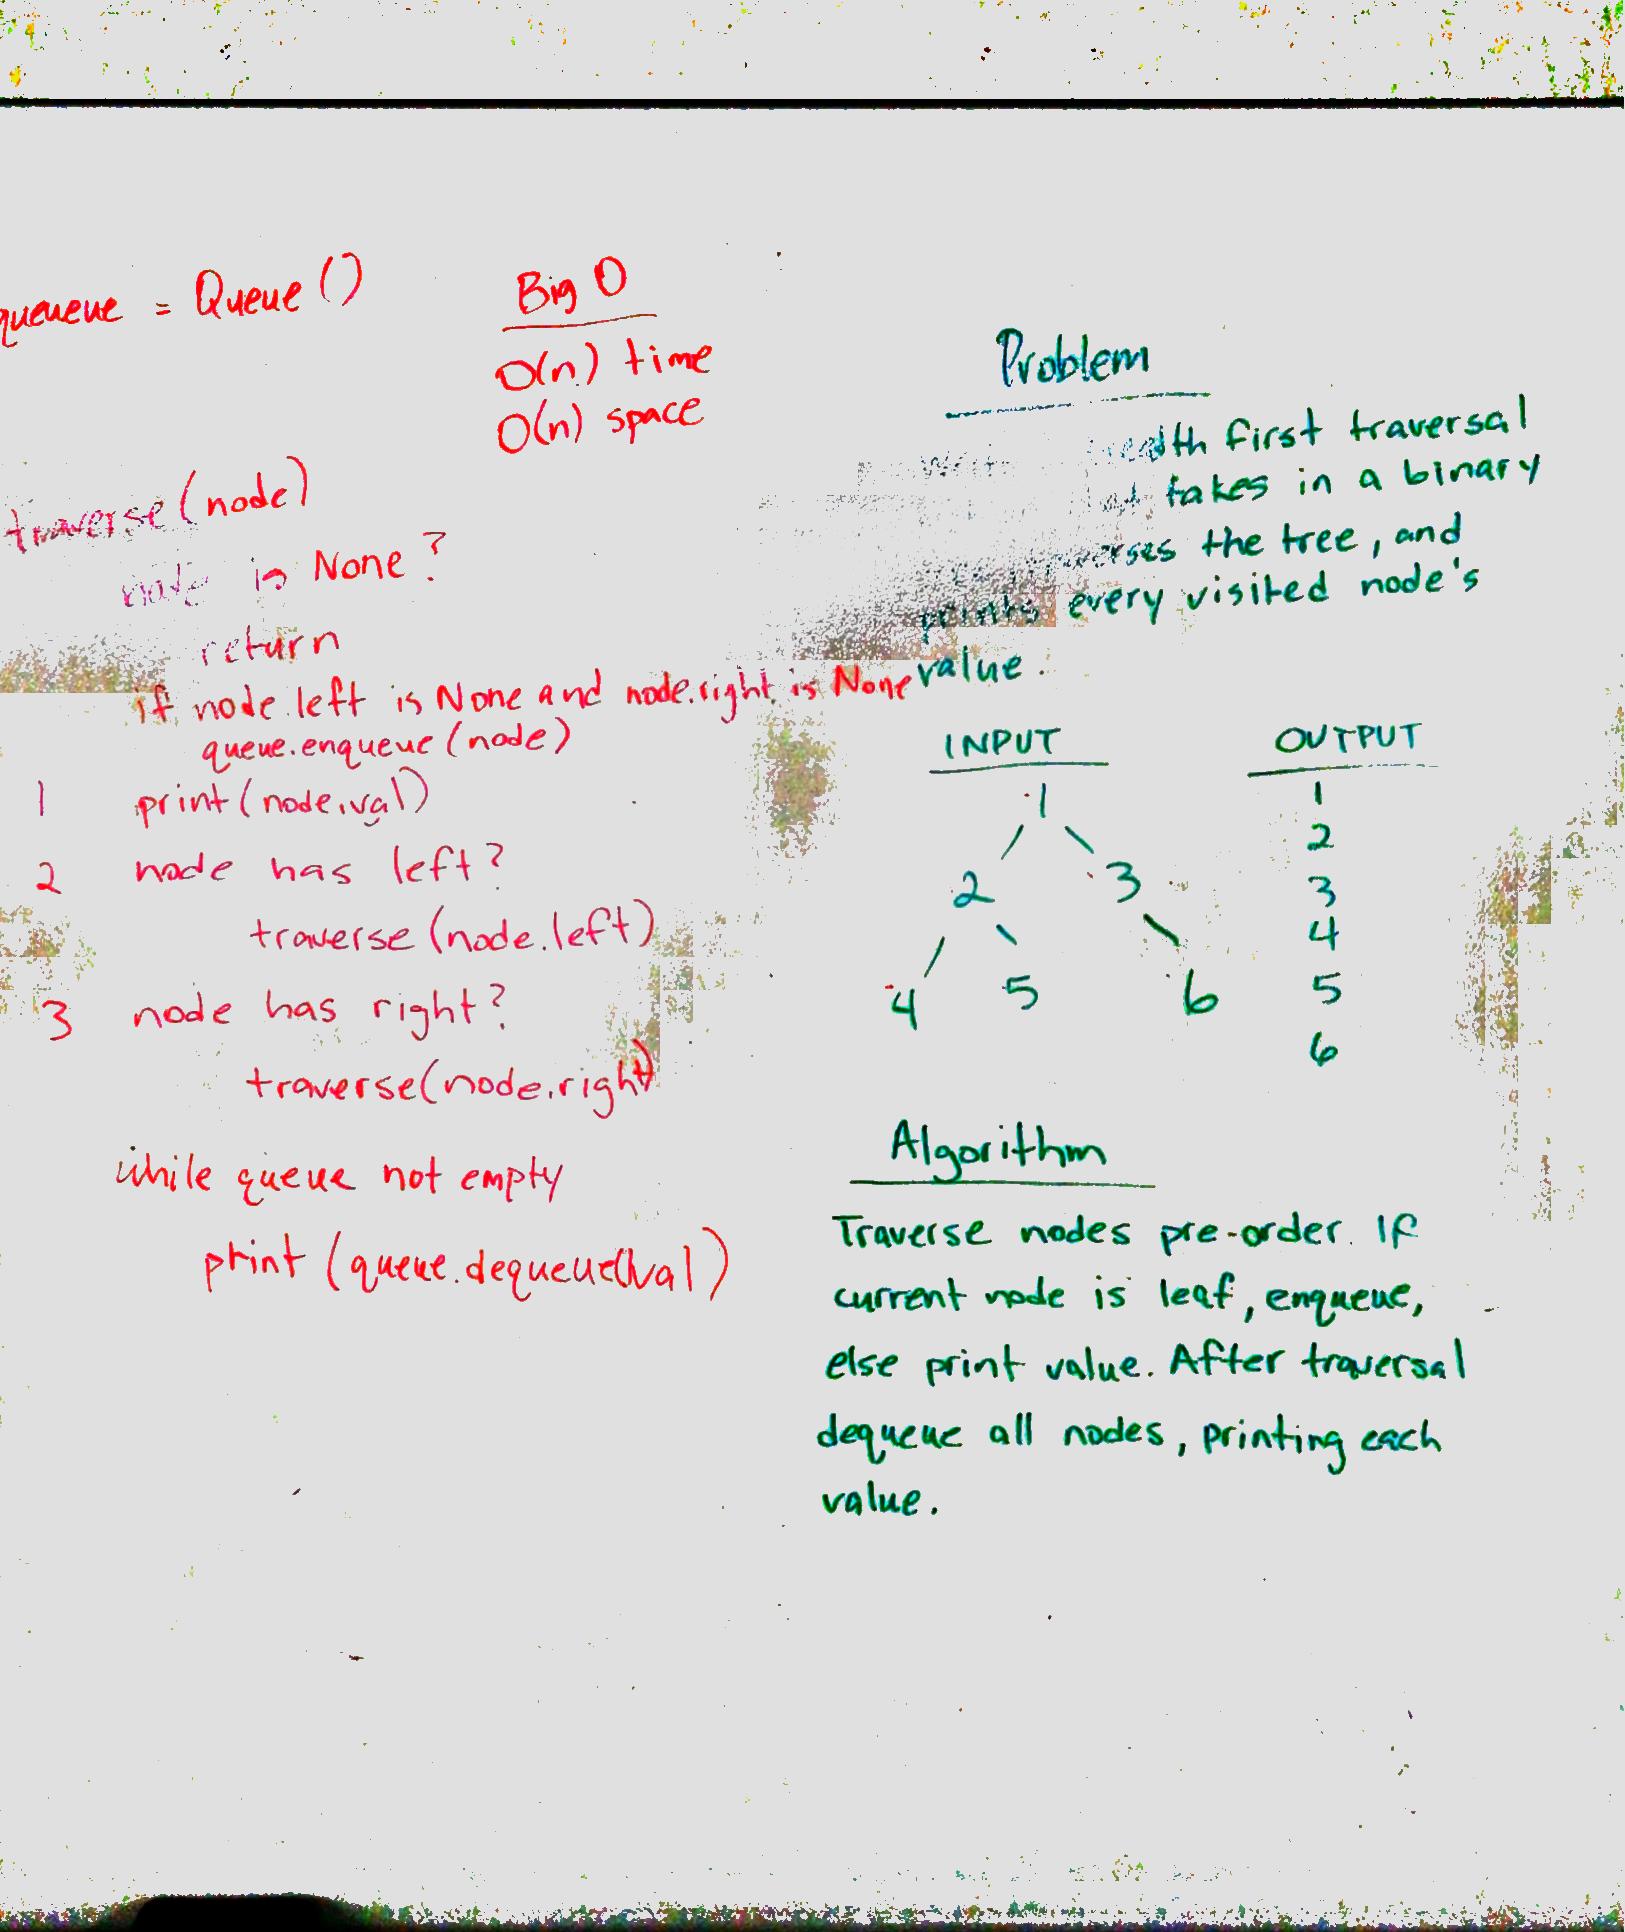 queueue = Queue()
Big O
O(n) time
O(n) space
traverse(node)
node is None?
return
if node.left is None and node.right is None
queue.enqueue(node)
1 print(node.val)
2 node has left?
traverse(node.left)
3 node has right?
traverse(node.right)
while queue not empty
print(queue.dequeue().val)
Problem
first traversal
takes in a binary
the tree, and
prints every visited node's
value.
INPUT
1
2 3
4 5 6
OUTPUT
1
2
3
4
5
6
Algorithm
Traverse nodes pre-order. If
current node is leaf, enqueue,
else print value. After traversal
dequeue all nodes, printing each
value.